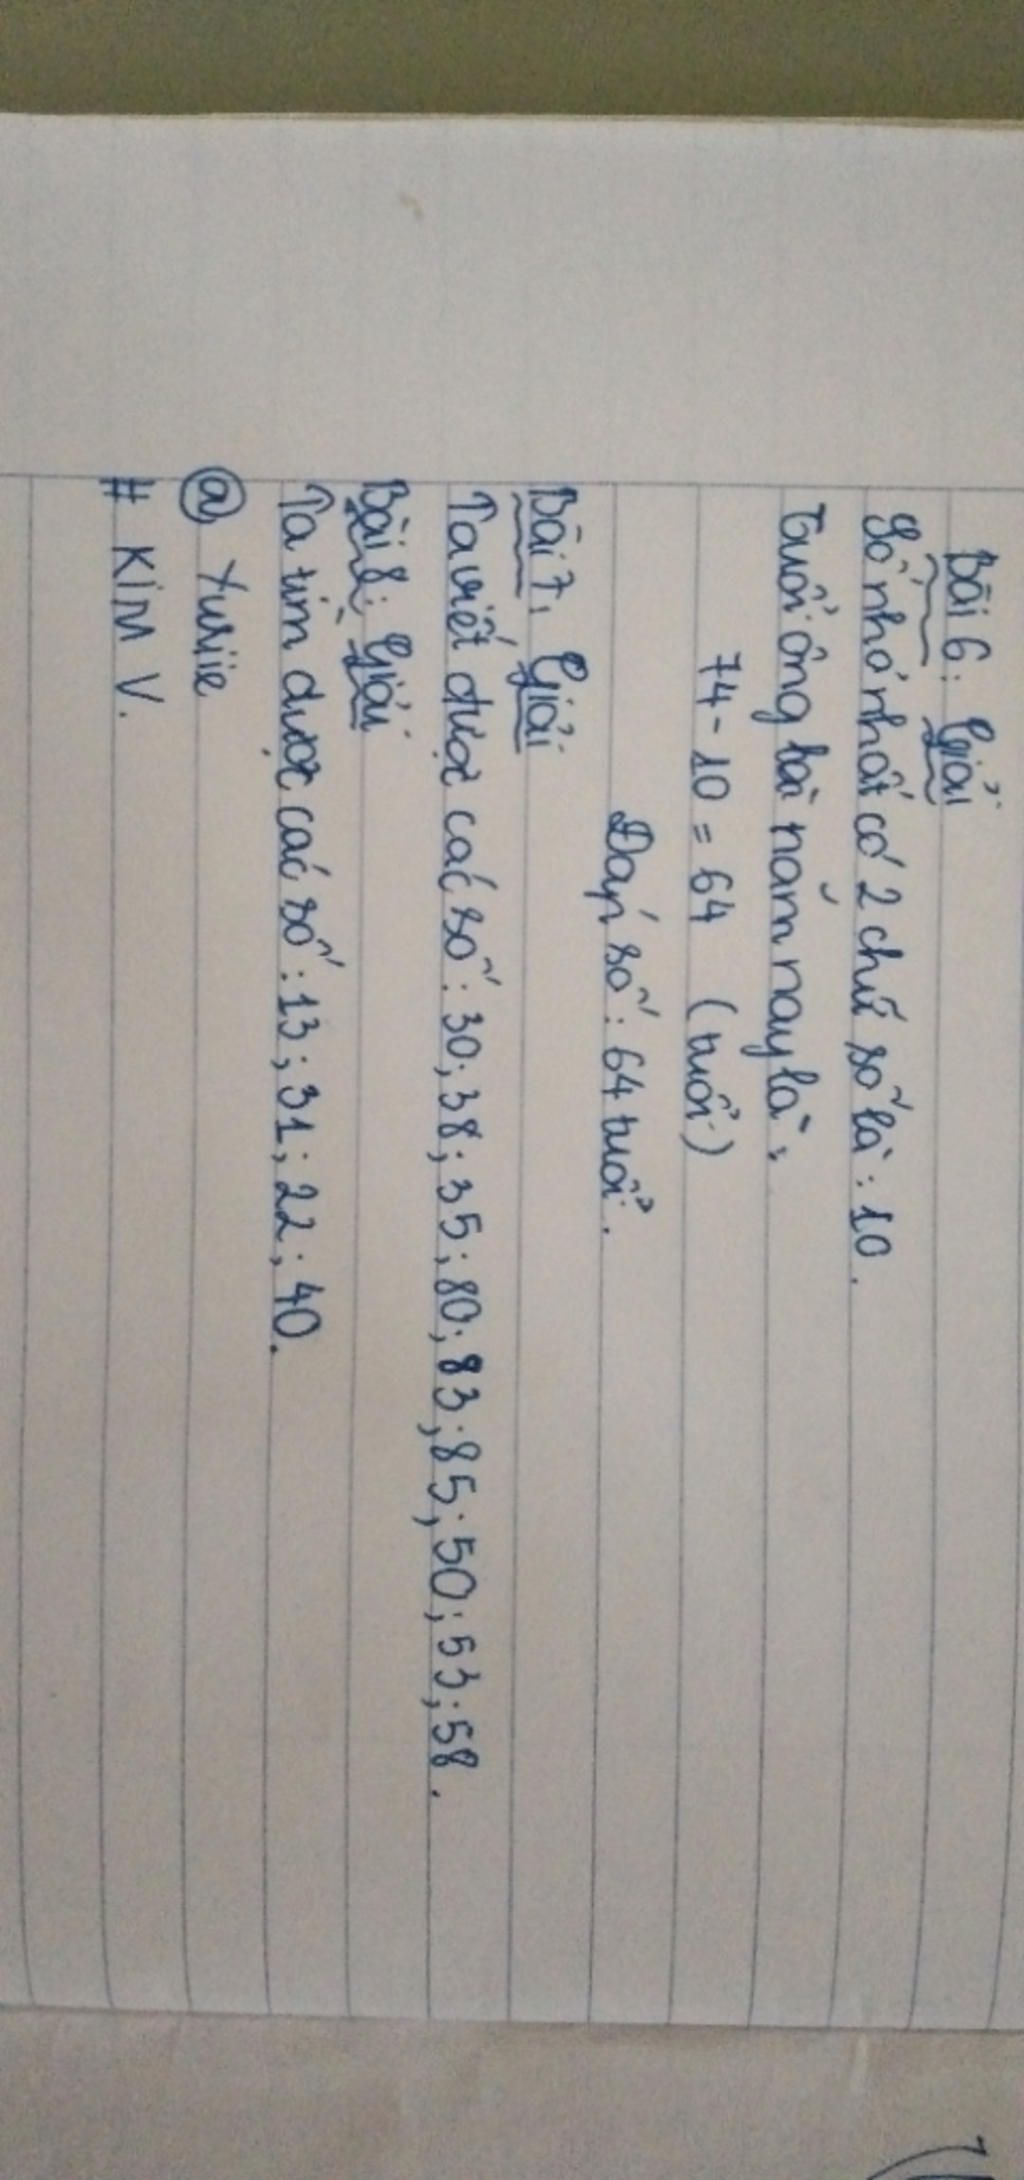 Bài 6: Giải
Số nhỏ nhất có 2 chữ số là: 10.
Tuổi ông Hà năm nay là:
74 - 10 = 64 (tuổi)
Đáp số: 64 tuổi.
Bài 7: Giải
Ta viết được các số: 30; 38; 35; 80; 83; 85; 50; 53; 58.
Bài 8: Giải
Ta tìm được các số: 13; 31; 22; 40.
@ Yuriie
# KIM V.